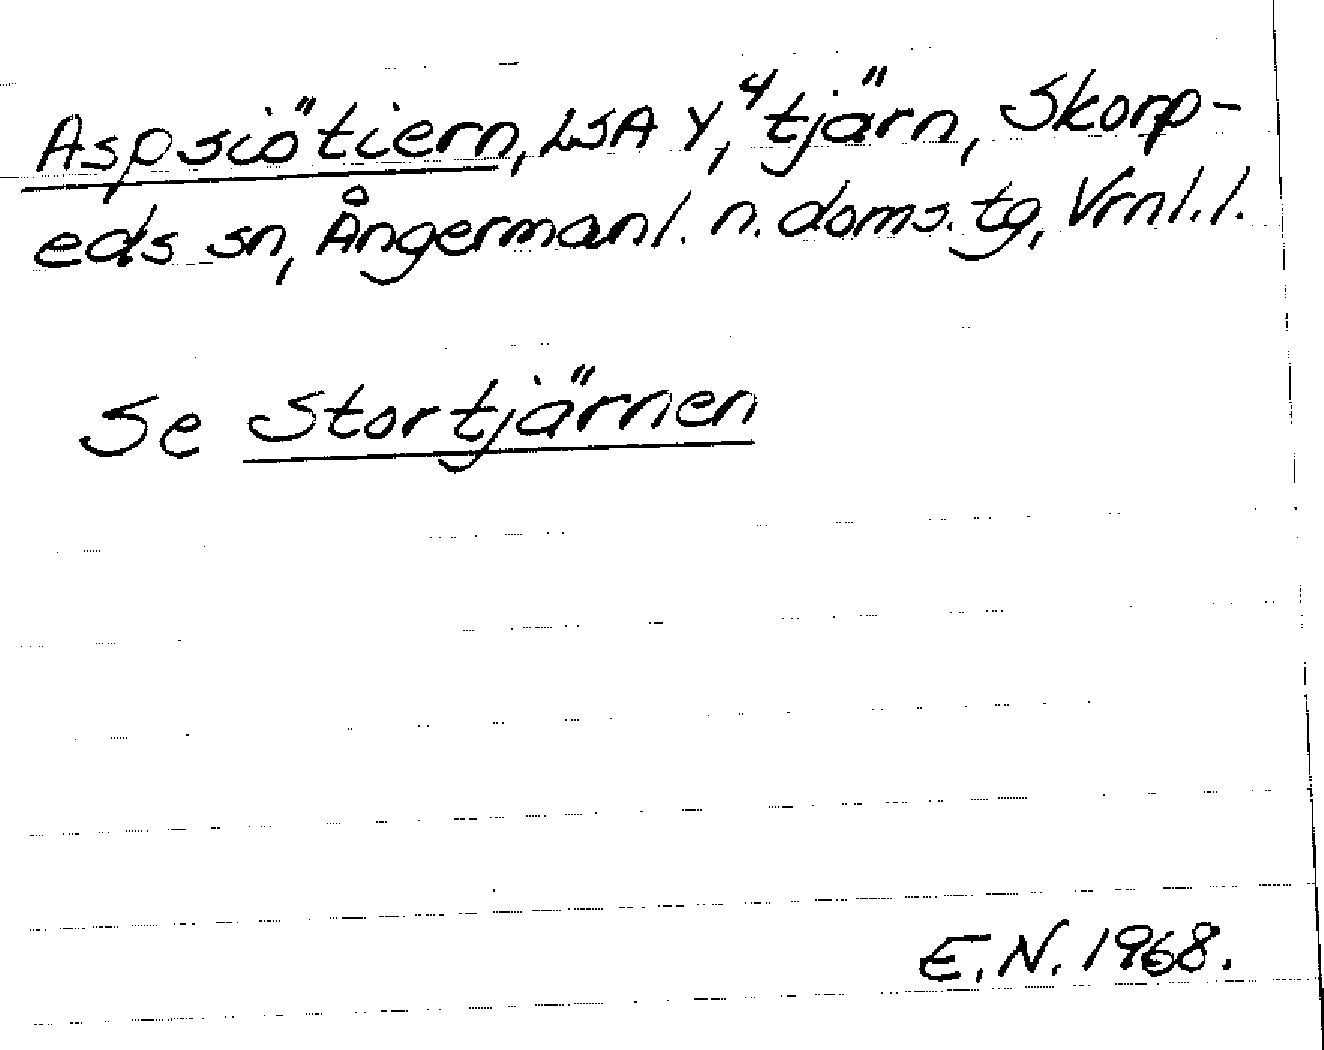 Aspsiötiern, LSA Y⁴, tjärn, Skorp-
eds sn, Ångermanl. n. doms. tg, Vrnl.l.
Se Stortjärnen
E.N. 1968.